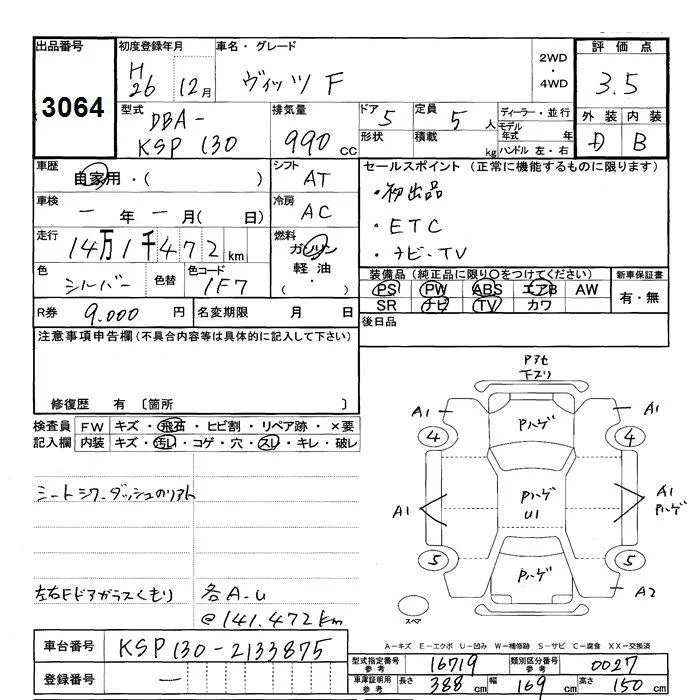 出品番号
3064
初度登録年月
H26 12月
車名・グレード
ヴィッツ F
2WD
・
4WD
評価点
3.5
外装 内装
D B
型式
DBA-
KSP 130
排気量
990 cc
ドア 5
形状
定員 5 人
積載 kg
ディーラー・並行
モデル年式 年
ハンドル 左・右
車歴
自家用・( )
シフト
AT
車検
一 年 一 月( 日)
冷房
AC
走行
14万1千472km
燃料
ガソリン
軽油
( ・ )
色
シルバー
色替
色コード
1F7
R券 9.000 円
名変期限 月 日
セールスポイント (正常に機能するものに限ります)
・初出品
・ETC
・ナビ・TV
装備品(純正品に限り○をつけてください)
PS PW ABS エアB AW
SR ナビ TV カワ
新車保証書
有・無
後日品
注意事項申告欄(不具合内容等は具体的に記入して下さい)
修復歴 有 〔箇所 〕
検査員 FW キズ・飛石・ヒビ割・リペア跡・×要
記入欄 内装 キズ・汚れ・コゲ・穴・スレ・キレ・破レ
シートシワ・ダッシュのリアト
左右Fドアガラスくもり
各A-U
@141.472km
Pハゲ
A1 A1
4 4
Pハゲ
U1
A1
A1
Pハゲ
5 5
Pハゲ
A2
スペア
A-キズ E-エクボ U-凹み W-補修跡 S-サビ C-腐食 XX-交換済
車台番号 KSP130-2133875
登録番号 一
型式指定番号 参考 16719
類別区分番号 参考 0027
車庫証明用 参考
長さ 388 cm 幅 169 cm 高さ 150 cm